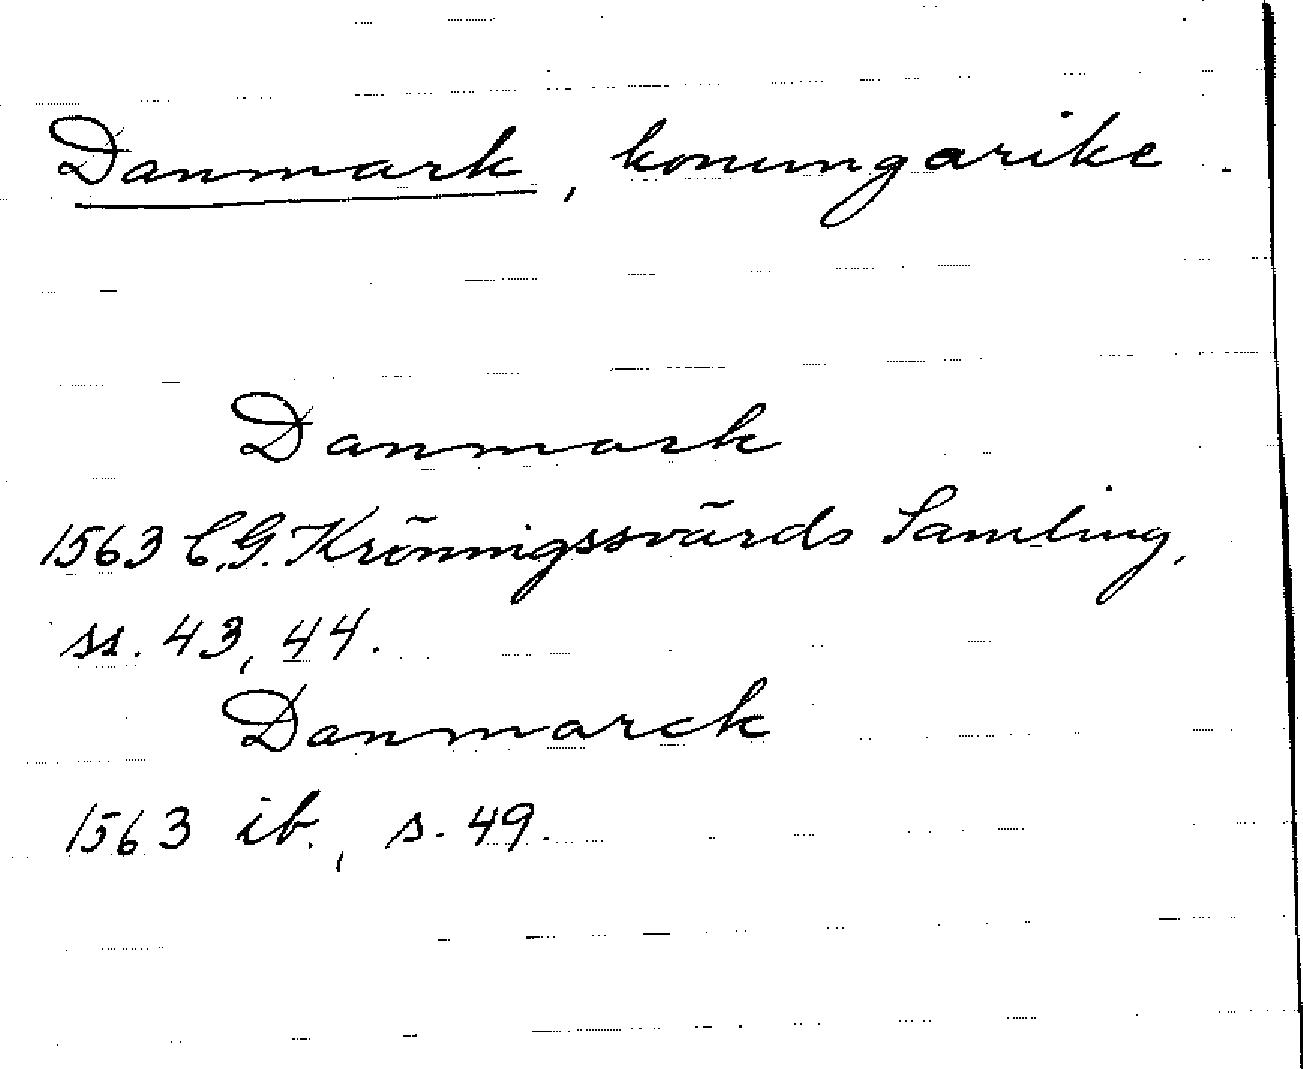 Danmark, konungarike
Danmark
1563 C.G. Kröningssvärds Samling,
ss. 43, 44.
Danmarck
1563 ib., s. 49.